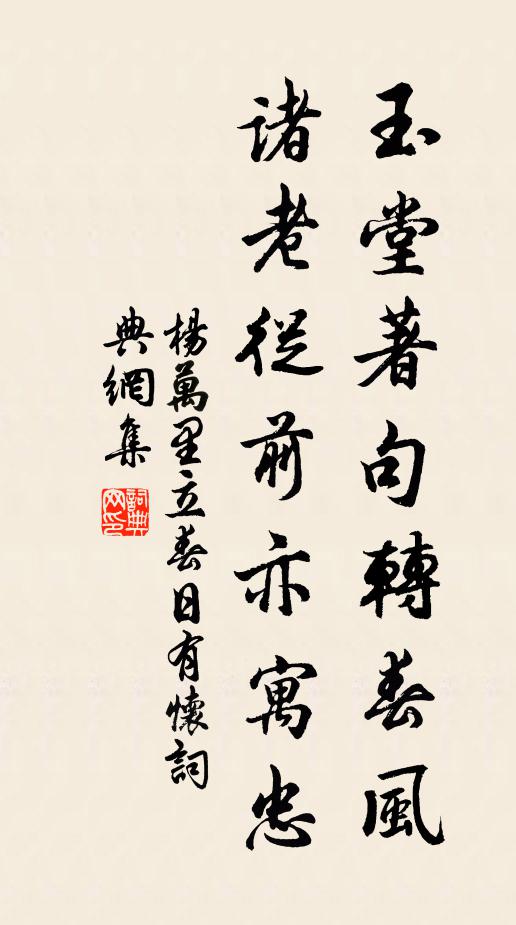 玉堂著句轉春風
諸老從前亦寓忠
楊萬里立春日有懷詞
典網集
詞典網印